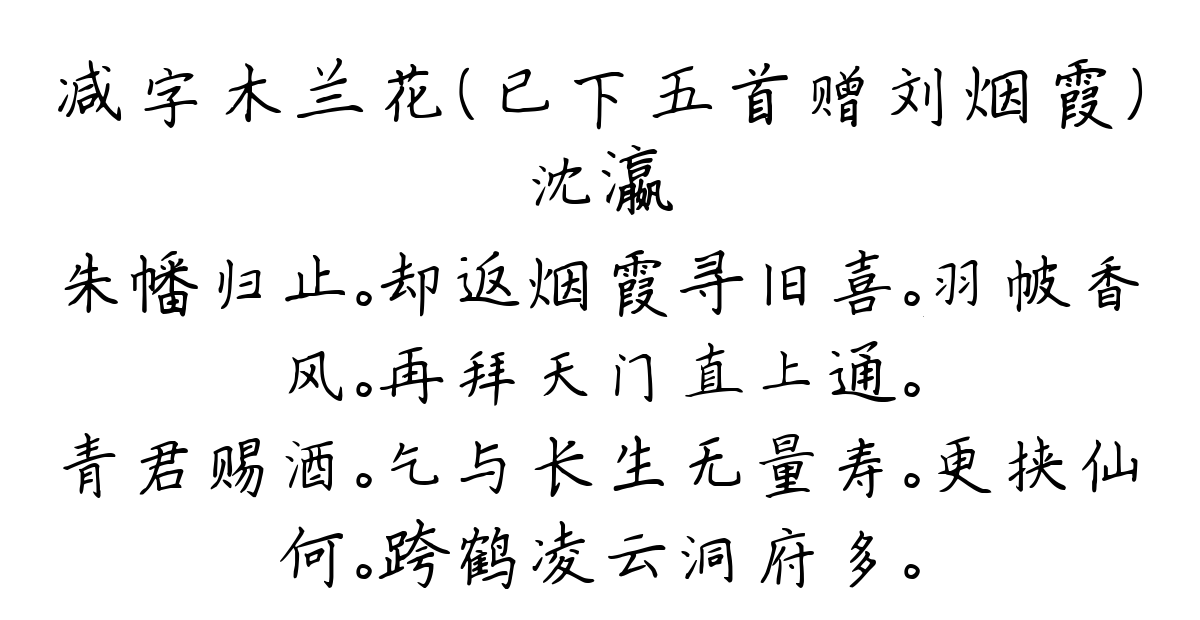 减字木兰花(已下五首赠刘烟霞)
沈瀛
朱幡归止。却返烟霞寻旧喜。羽帔香
风。再拜天门直上通。
青君赐酒。乞与长生无量寿。更挟仙
何。跨鹤凌云洞府多。